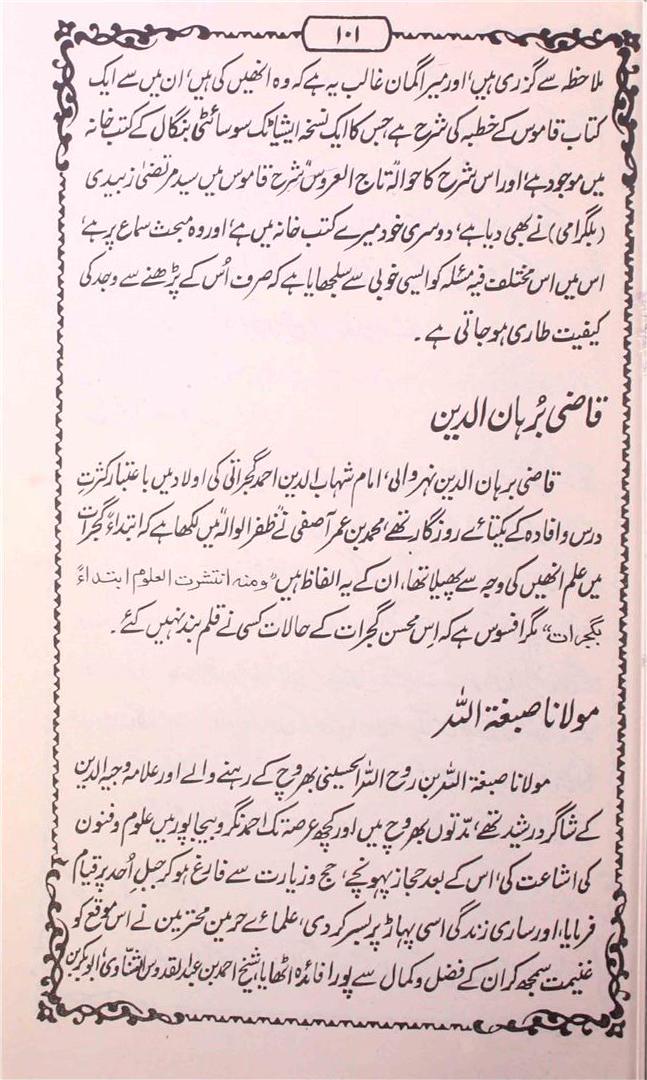 ۱۰۱
ملاحظہ سے گزری ہیں، اور میرا گمان غالب یہ ہے کہ وہ انھیں کی ہیں، ان میں سے ایک
کتاب قاموس کے خطبہ کی شرح ہے جس کا ایک نسخہ ایشیاٹک سوسائٹی بنگال کے کتب خانہ
میں موجود ہے، اور اس شرح کا حوالہ تاج العروس شرح قاموس میں سید مرتضیٰ زبیدی
(بلگرامی) نے بھی دیا ہے، دوسری خود میرے کتب خانہ میں ہے، اور وہ مبحث سماع پر ہے،
اس میں اس مختلف فیہ مسئلہ کو ایسی خوبی سے سلجھایا ہے کہ صرف اُس کے پڑھنے سے وجد کی
کیفیت طاری ہو جاتی ہے۔
قاضی بُرہان الدین
قاضی برہان الدین نہروالی، امام شہاب الدین احمد گجراتی کی اولاد میں باعتبار کثرتِ
درس و افادہ کے یکتائے روزگار تھے، محمد بن عمر آصفی نے ظفر الوالہ میں لکھا ہے کہ ابتداءً گجرات
میں علم انھیں کی وجہ سے پھیلا تھا، ان کے یہ الفاظ ہیں "ومنہ انتشرت العلوم ابتداءً
بگجرات" مگر افسوس ہے کہ اِس محسن گجرات کے حالات کسی نے قلم بند نہیں کئے۔
مولانا صبغۃ اللہ
مولانا صبغۃ اللہ بن روح اللہ الحسینی بھروچ کے رہنے والے اور علامہ وجیہ الدین
کے شاگرد رشید تھے، مدّتوں بھروچ میں اور کچھ عرصہ تک احمد نگر و بیجاپور میں علوم و فنون
کی اشاعت کی، اس کے بعد حجاز پہونچے، حج و زیارت سے فارغ ہو کر جبلِ اُحد پر قیام
فرمایا، اور ساری زندگی اسی پہاڑ پر بسر کر دی، علمائے حرمین محترمین نے اس موقع کو
غنیمت سمجھ کر ان کے فضل و کمال سے پورا فائدہ اٹھایا، شیخ احمد بن عبدالقدوس الشناوی، ابوبکر بن